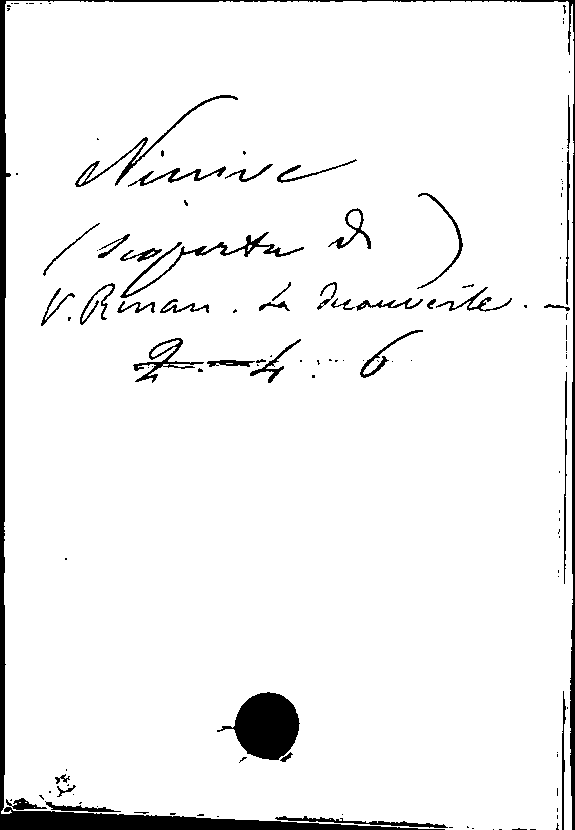 Ninive
(scoperta di)
V. Renan. La découverte. —
2. 4. 6